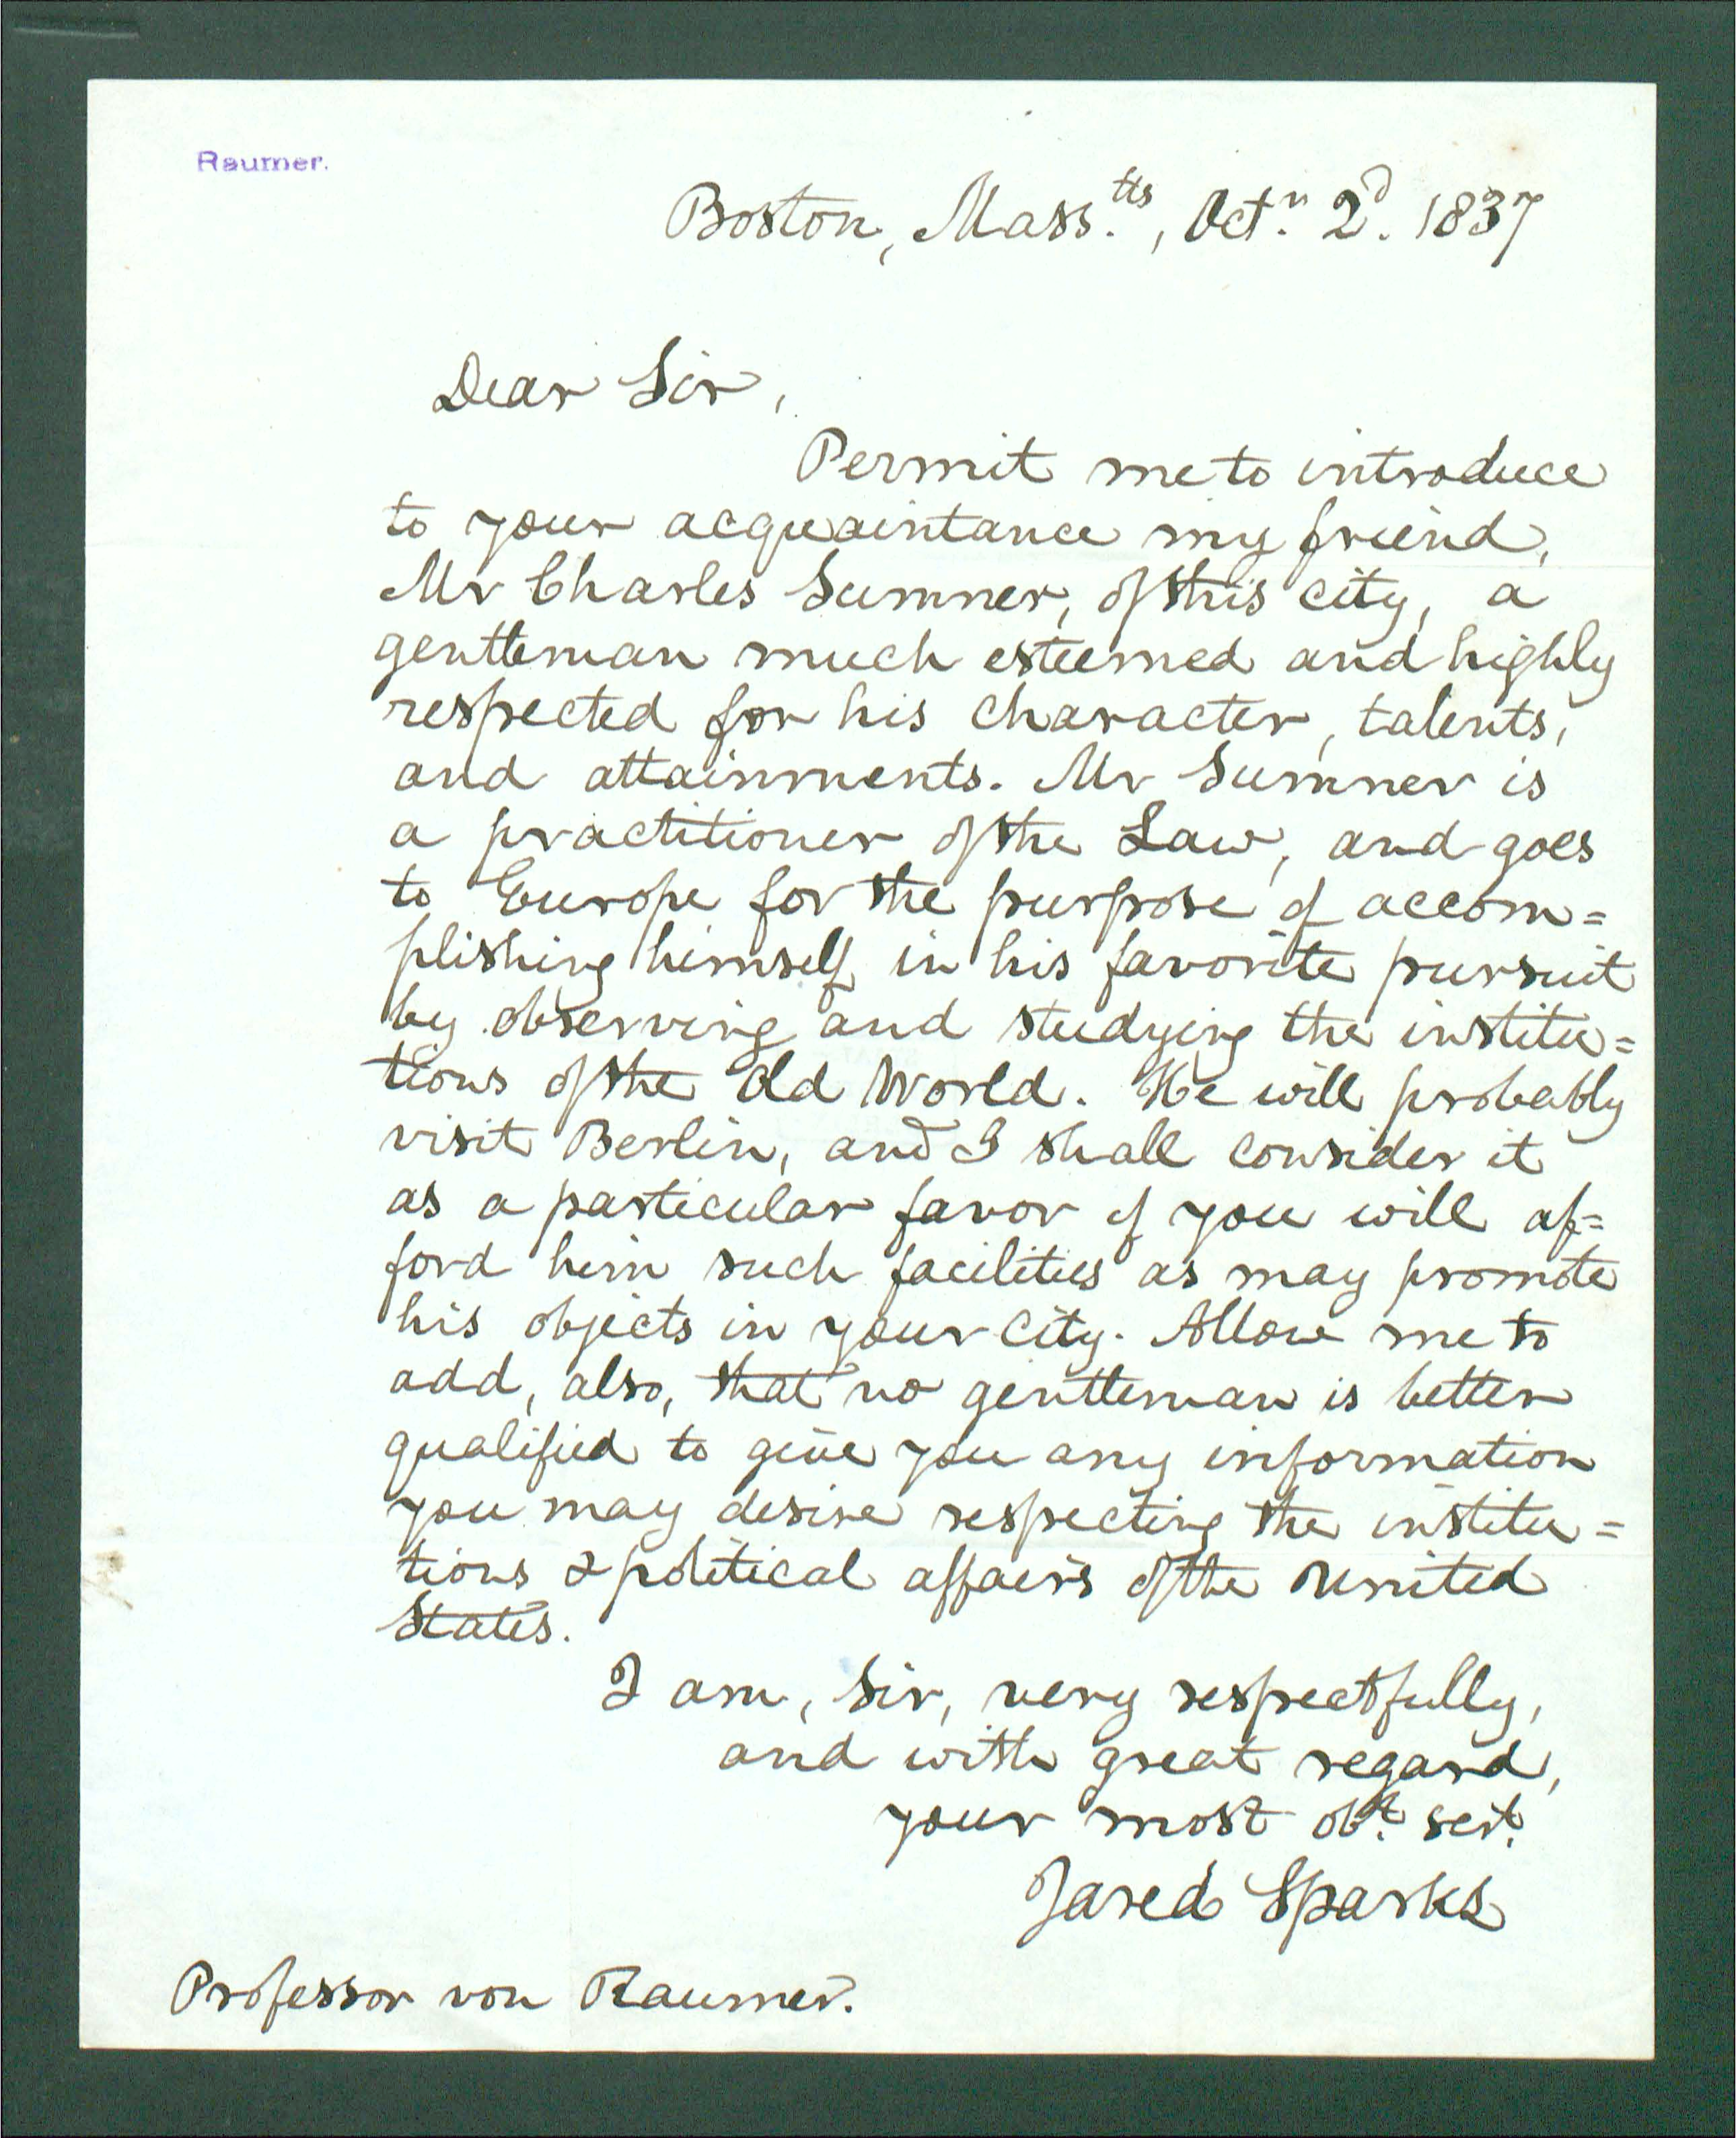 Raumer.
Boston, Mass.tts, Octr. 2d. 1837
Dear Sir,
Permit me to introduce
to your acquaintance my friend,
Mr Charles Sumner, of this city, a
gentleman much esteemed and highly
respected for his character, talents,
and attainments. Mr Sumner is
a practitioner of the Law, and goes
to Europe for the purpose of accom=
plishing himself in his favorite pursuit
by observing and studying the institu=
tions of the Old World. He will probably
visit Berlin, and I shall consider it
as a particular favor if you will af=
ford him such facilities as may promote
his objects in your city. Allow me to
add, also, that no gentleman is better
qualified to give you any information
you may desire respecting the institu=
tions & political affairs of the United
States.
I am, Sir, very respectfully,
and with great regard,
your most obt. sert.
Jared Sparks
Professor von Raumer.